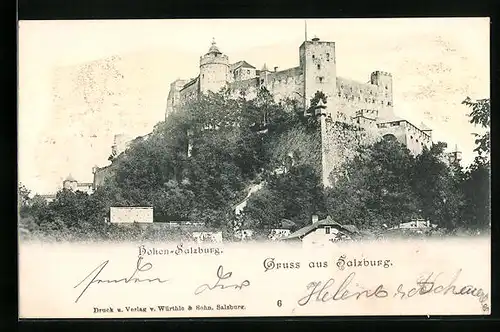 Hohen-Salzburg.
Gruss aus Salzburg.
senden Dir
Helene &
Druck u. Verlag v. Würthle & Sohn, Salzburg.
6